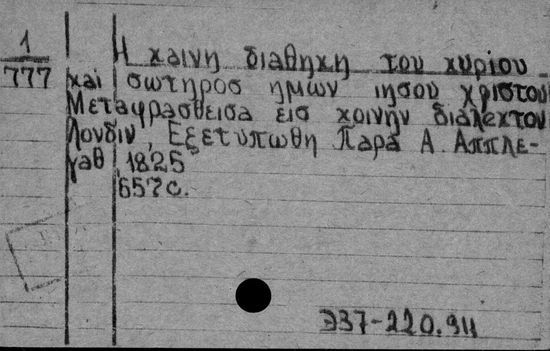 1
777
Η χαινη διαθηχη του χυριου
χαι σωτηροσ ημων ιησου χριστου
Μεταφρασθεισα εισ χοινην διαλεχτον
Λονδιν, Εξετυπωθη Παρα Α. Αππλε-
γαθ, 1825
657 с.
Э37-220.911